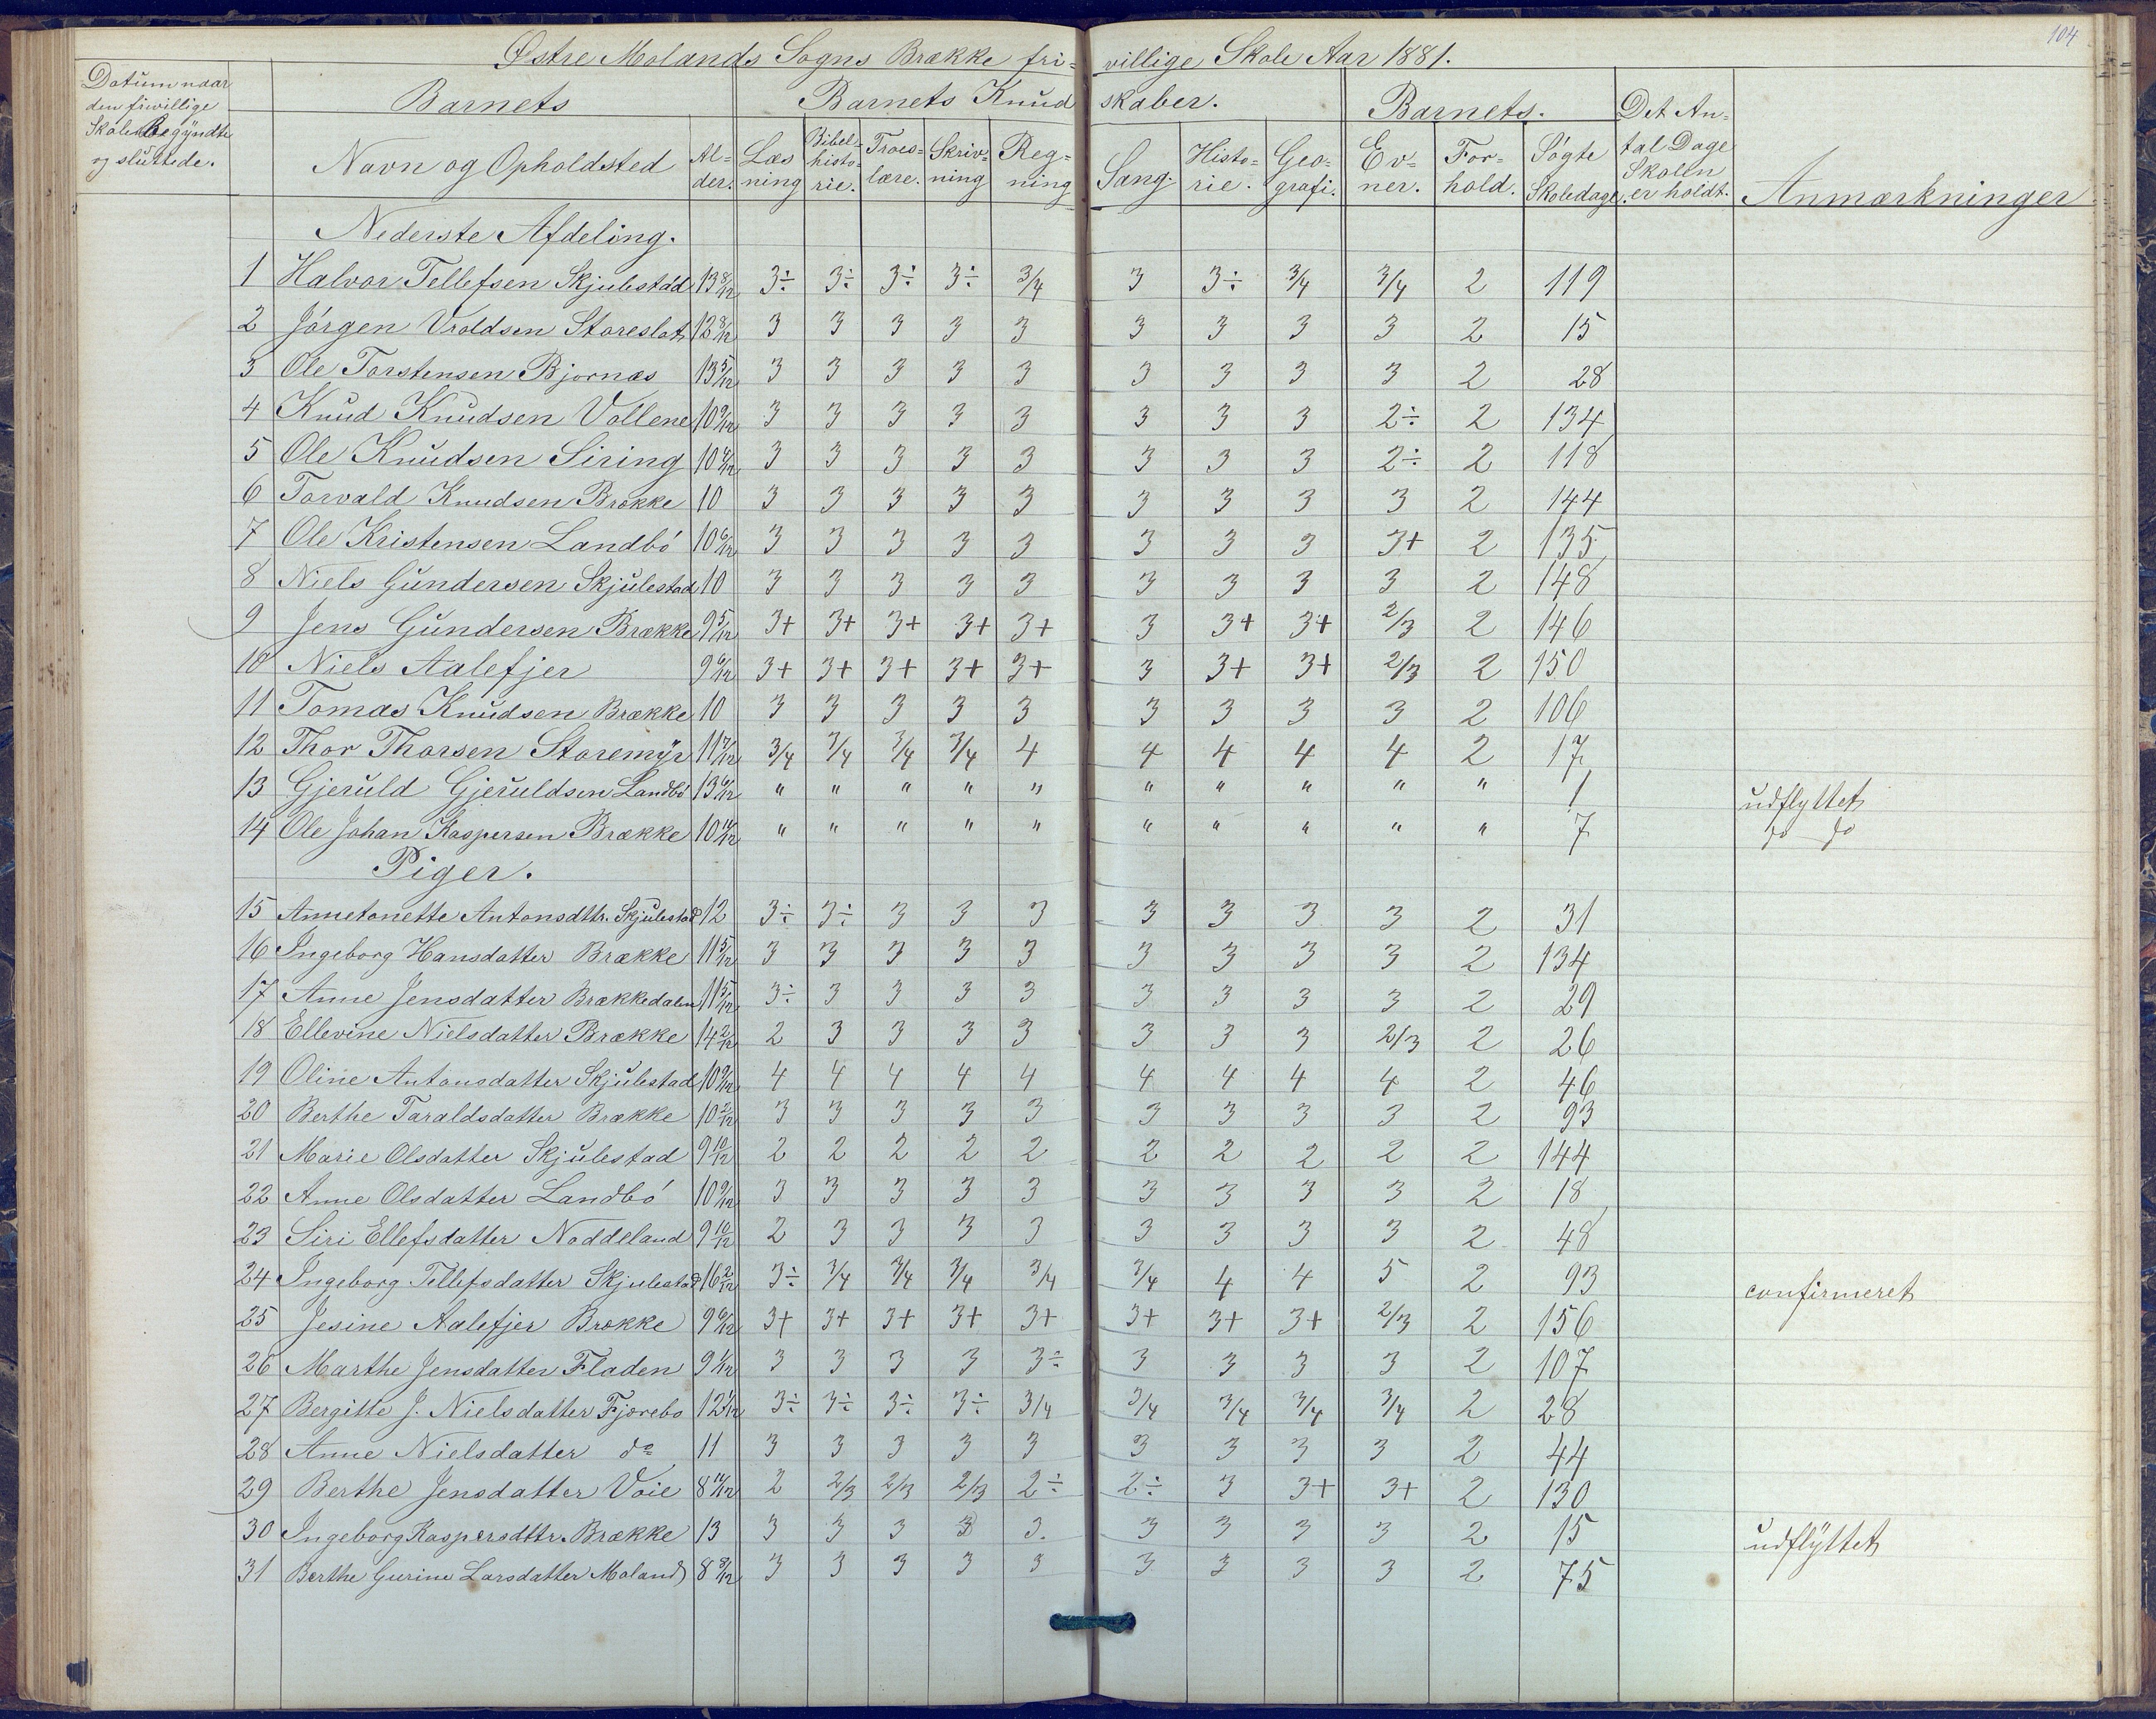 104
Østre Molands Sogns Brække fri= villige Skole Aar 1881.
Datum naar den frivillige Skole Begyndte og sluttede.
Barnets
Barnets Knud skaber.
Barnets.
Det An= tal Dage Skolen er holdt.
Anmærkninger
Navn og Opholdsted Al= der. Læs ning Bibel= histo= rie. Troes= lære. Skriv= ning Reg= ning Sang. Histo= rie. Geo= grafi. Ev= ner. For= hold. Søgte Skoledage.
Nederste Afdeling.
1 Halvor Tellefsen Skjulestad 13 8/12 3÷ 3÷ 3÷ 3÷ 3/4 3 3÷ 3/4 3/4 2 119
2 Jørgen Vroldsen Storeslot 12 8/12 3 3 3 3 3 3 3 3 3 2 15
3 Ole Torstensen Bjornæs 13 5/12 3 3 3 3 3 3 3 3 3 2 28
4 Knud Knudsen Vollene 10 9/12 3 3 3 3 3 3 3 3 2÷ 2 134
5 Ole Knudsen Siring 10 3 3 3 3 3 3 3 3 2÷ 2 118
6 Torvald Knudsen Brække 10 3 3 3 3 3 3 3 3 3 2 144
7 Ole Kristensen Landbó 10 6/12 3 3 3 3 3 3 3 3 3+ 2 135
8 Niels Gundersen Skjulestad 10 3 3 3 3 3 3 3 3 3 2 148
9 Jens Gundersen Brække 9 5/12 3+ 3+ 3+ 3+ 3+ 3 3+ 3+ 2/3 2 146
10 Niels Aalefjer 9 6/12 3+ 3+ 3+ 3+ 3+ 3 3+ 3+ 2/3 2 150
11 Tomas Knudsen Brække 10 3 3 3 3 3 3 3 3 3 2 106
12 Thor Thorsen Storemyr 11 7/12 3/4 3/4 3/4 3/4 4 4 4 4 4 2 17
13 Gjeruld Gjeruldsen Landbó 13 6/12 " " " " " " " " " " 1 udflyttet
14 Ole Johan Kaspersen Brække 10 11/12 " " " " " " " " " " 7 do do
Piger.
15 Annetonette Antonsdttr. Skjulestad 12 3÷ 3÷ 3 3 3 3 3 3 3 2 31
16 Ingeborg Hansdatter Brække 11 5/12 3 3 3 3 3 3 3 3 3 2 134
17 Anne Jensdatter Brækkedalen 11 5/12 3÷ 3 3 3 3 3 3 3 3 2 29
18 Ellevine Nielsdatter Brække 14 2/12 2 3 3 3 3 3 3 3 2/3 2 26
19 Oline Antonsdatter Skjulestad 10 9/12 4 4 4 4 4 4 4 4 4 2 46
20 Berthe Taraldsdatter Brække 10 2/12 3 3 3 3 3 3 3 3 3 2 93
21 Marie Olsdatter Skjulestad 9 10/12 2 2 2 2 2 2 2 2 2 2 144
22 Anne Olsdatter Landbó 10 9/12 3 3 3 3 3 3 3 3 3 2 18
23 Siri Ellefsdatter Noddeland 9 10/12 2 3 3 3 3 3 3 3 3 2 48
24 Ingeborg Tellefsdatter Skjulestad 16 2/12 3÷ 3/4 3/4 3/4 3/4 3/4 4 4 5 2 93 confirmeret
25 Jesine Aalefjer Brække 9 6/12 3+ 3+ 3+ 3+ 3+ 3+ 3+ 3+ 2/3 2 156
26 Marthe Jensdatter Fladen 9 1/12 3 3 3 3 3÷ 3 3 3 3 2 107
27 Bergitte J. Nielsdatter Fjærebo 12 3÷ 3÷ 3÷ 3÷ 3/4 3/4 3/4 3/4 3/4 2 28
28 Anne Nielsdatter do 11 3 3 3 3 3 3 3 3 3 2 44
29 Berthe Jensdatter Voie 8 11/12 2 2/3 2/3 2/3 2÷ 2÷ 3 3+ 3+ 2 130
30 Ingeborg Kaspersdttr. Brække 13 3 3 3 3 3. 3 3 3 3 2 15 udflyttet
31 Berthe Gurine Larsdatter Moland 8 8/12 3 3 3 3 3 3 3 3 3 2 75